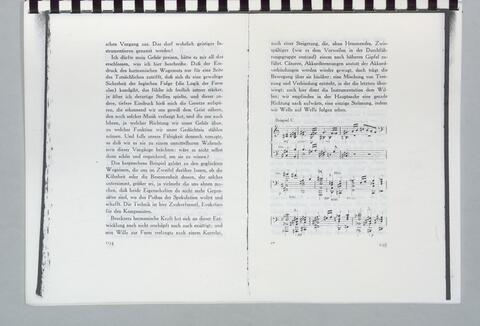 schen Vorgang aus. Das darf wahrlich geistiger In-
strumentieren genannt werden!
Ich dürfte mein Gehör preisen, hätte es mir all das
erschlossen, was ich hier beschreibe. Daß der Ein-
druck des harmonischen Wagnisses nur für eine Seite
des Tatsächlichen zutrifft, daß sich da eine gewaltige
Sicherheit der logischen Folge (die Logik der Form
also) kundgibt, das fühlte ich freilich immer stärker,
je öfter ich derartige Stellen spielte, und dieser an-
dere, tiefere Eindruck hieß mich die Gesetze aufspü-
ren, die erkennend wir uns gewiß dem Geist nähern,
den noch solcher Musik verlangt hat, und die nur uns
lehren, in welcher Richtung wir unser Gehör üben,
zu welcher Funktion wir unser Gedächtnis stählen
müssen. Und falls unsere Fähigkeit dennoch versagte,
so daß wir es nie zu einem unmittelbaren Wahrneh-
men dieser Vorgänge brächten: wäre es nicht selbst
dann schön und erquickend, um sie zu wissen?
Das besprochene Beispiel gehört zu den geglückten
Wagnissen, die uns im Zweifel darüber lassen, ob die
Kühnheit oder die Besonnenheit dessen, der solches
unternimmt, größer sei, ja vielmehr die uns ahnen ma-
chen, daß beide Eigenschaften da nicht mehr Gegen-
sätze sind, wo das Pathos der Spekulation waltet und
schafft. Die Technik ist hier Zauberformel, Evokation
für den Komponisten.
Bruckners harmonische Kraft hat sich an dieser Ent-
wicklung noch nicht erschöpft noch auch gesättigt; und
sein Wille zur Form verlangte nach einem Korrelat,
194
nach einer Steigerung, die, ohne Hemmendes, Zwie-
spältiges (wie es dem Verweilen in der Durchfüh-
rungsgruppe entstand) einem noch höheren Gipfel zu-
führt. Cäsuren, Akkordtrennungen anstatt der Akkord-
verbindungen werden wieder gewagt, doch trägt die
Bewegung über sie hinüber; eine Mischung von Tren-
nung und Verbindung entsteht, in der die letztere über-
wiegt; auch hier dient die Instrumentation dem Wil-
len; wir empfinden in der Hauptsache eine gerade
Richtung nach aufwärts, eine einzige Steigerung, indem
wir Welle auf Welle folgen sehen.
Beispiel C
195